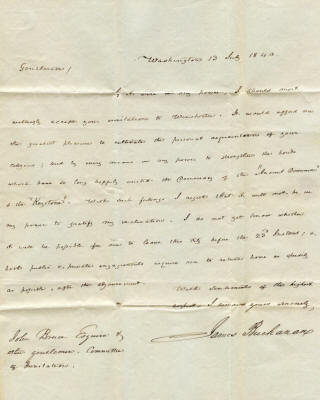 Washington 13 July 1840.
Gentlemen,
If it were in my power, I should most
cordially accept your invitation to Winchester. It would afford me
the greatest pleasure to cultivate the personal acquaintance of your
citizens; and by any means in my power to strengthen the bonds
which have so long happily united the Democracy of the "Ancient Dominion"
& the "Keystone". With such feelings I regret that it will not be in
my power to gratify my inclination. I do not yet know whether
it will be possible for me to leave this City before the 23d Instant; &
both public & private engagements require me to return home as speedily
as possible, after the adjournment.
With sentiments of the highest
respect, I remain yours sincerely,
James Buchanan
John Bruce Esquire &
other gentlemen, Committee
of Invitation.